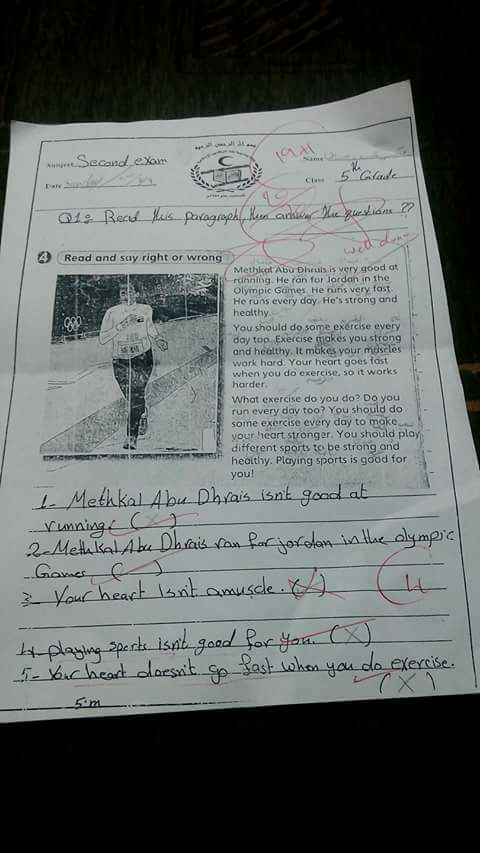 بسم الله الرحمن الرحيم
Subject Second exam
Name
Date
Class 5th Grade
19.11
Q1: Read this paragraph then answer the questions ??
well done
4 Read and say right or wrong
Methkal Abu Dhrais is very good at
running. He ran for Jordan in the
Olympic Games. He runs very fast.
He runs every day. He's strong and
healthy.
You should do some exercise every
day too. Exercise makes you strong
and healthy. It makes your muscles
work hard. Your heart goes fast
when you do exercise, so it works
harder.
What exercise do you do? Do you
run every day too? You should do
some exercise every day to make
your heart stronger. You should play
different sports to be strong and
healthy. Playing sports is good for
you!
1- Methkal Abu Dhrais isn't good at
running. (X)
2- Methkal Abu Dhrais ran for jordan in the olympic
Games (✓)
3- Your heart isn't amuscle. (X)
4
4- playing sports isn't good for you. (X)
5- Your heart doesn't go fast when you do exercise.
(X)
5.m